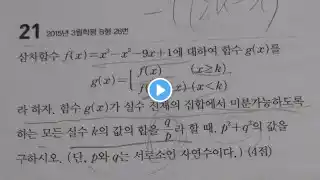 21 2015년 3월학평 B형 28번
삼차함수 f(x)=x³-x²-9x+1에 대하여 함수 g(x)를
g(x)={ f(x) (x≥k)
f(2k-x) (x<k)
라 하자. 함수 g(x)가 실수 전체의 집합에서 미분가능하도록
하는 모든 실수 k의 값의 합을 q/p라 할 때, p²+q²의 값을
구하시오. (단, p와 q는 서로소인 자연수이다.) (4점)